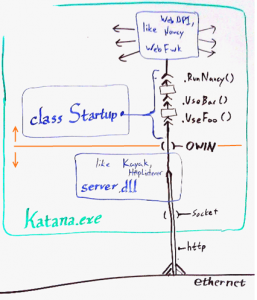 Web API,
like Nancy
Web Fwk
.RunNancy()
.UseBar()
.UseFoo()
class Startup
OWIN
like Kayak,
HttpListener
server.dll
Katana.exe
socket
http
ethernet